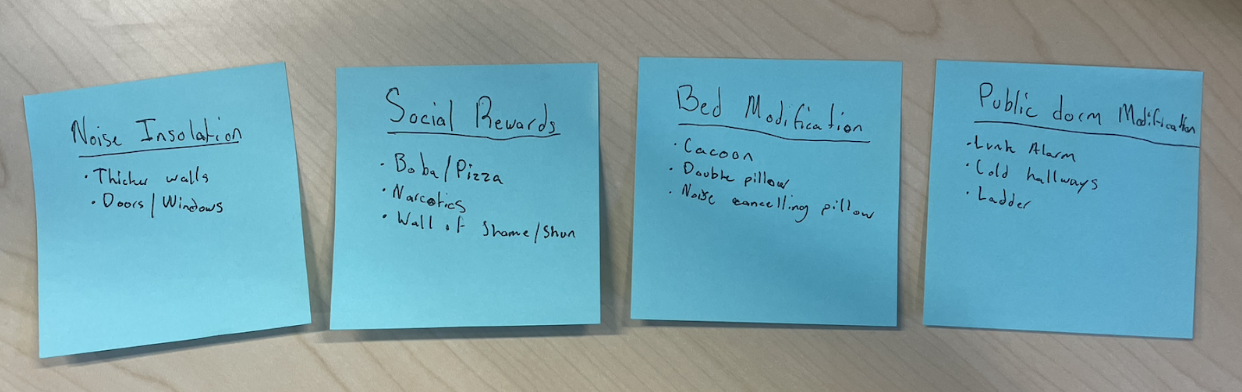 Noise Insolation
· Thicker walls
· Doors/Windows
Social Rewards
· Boba/Pizza
· Narcotics
· Wall of Shame/Shun
Bed Modification
· Cacoon
· Double pillow
· Noise cancelling pillow
Public dorm Modification
· Lunk Alarm
· Cold hallways
· Ladder